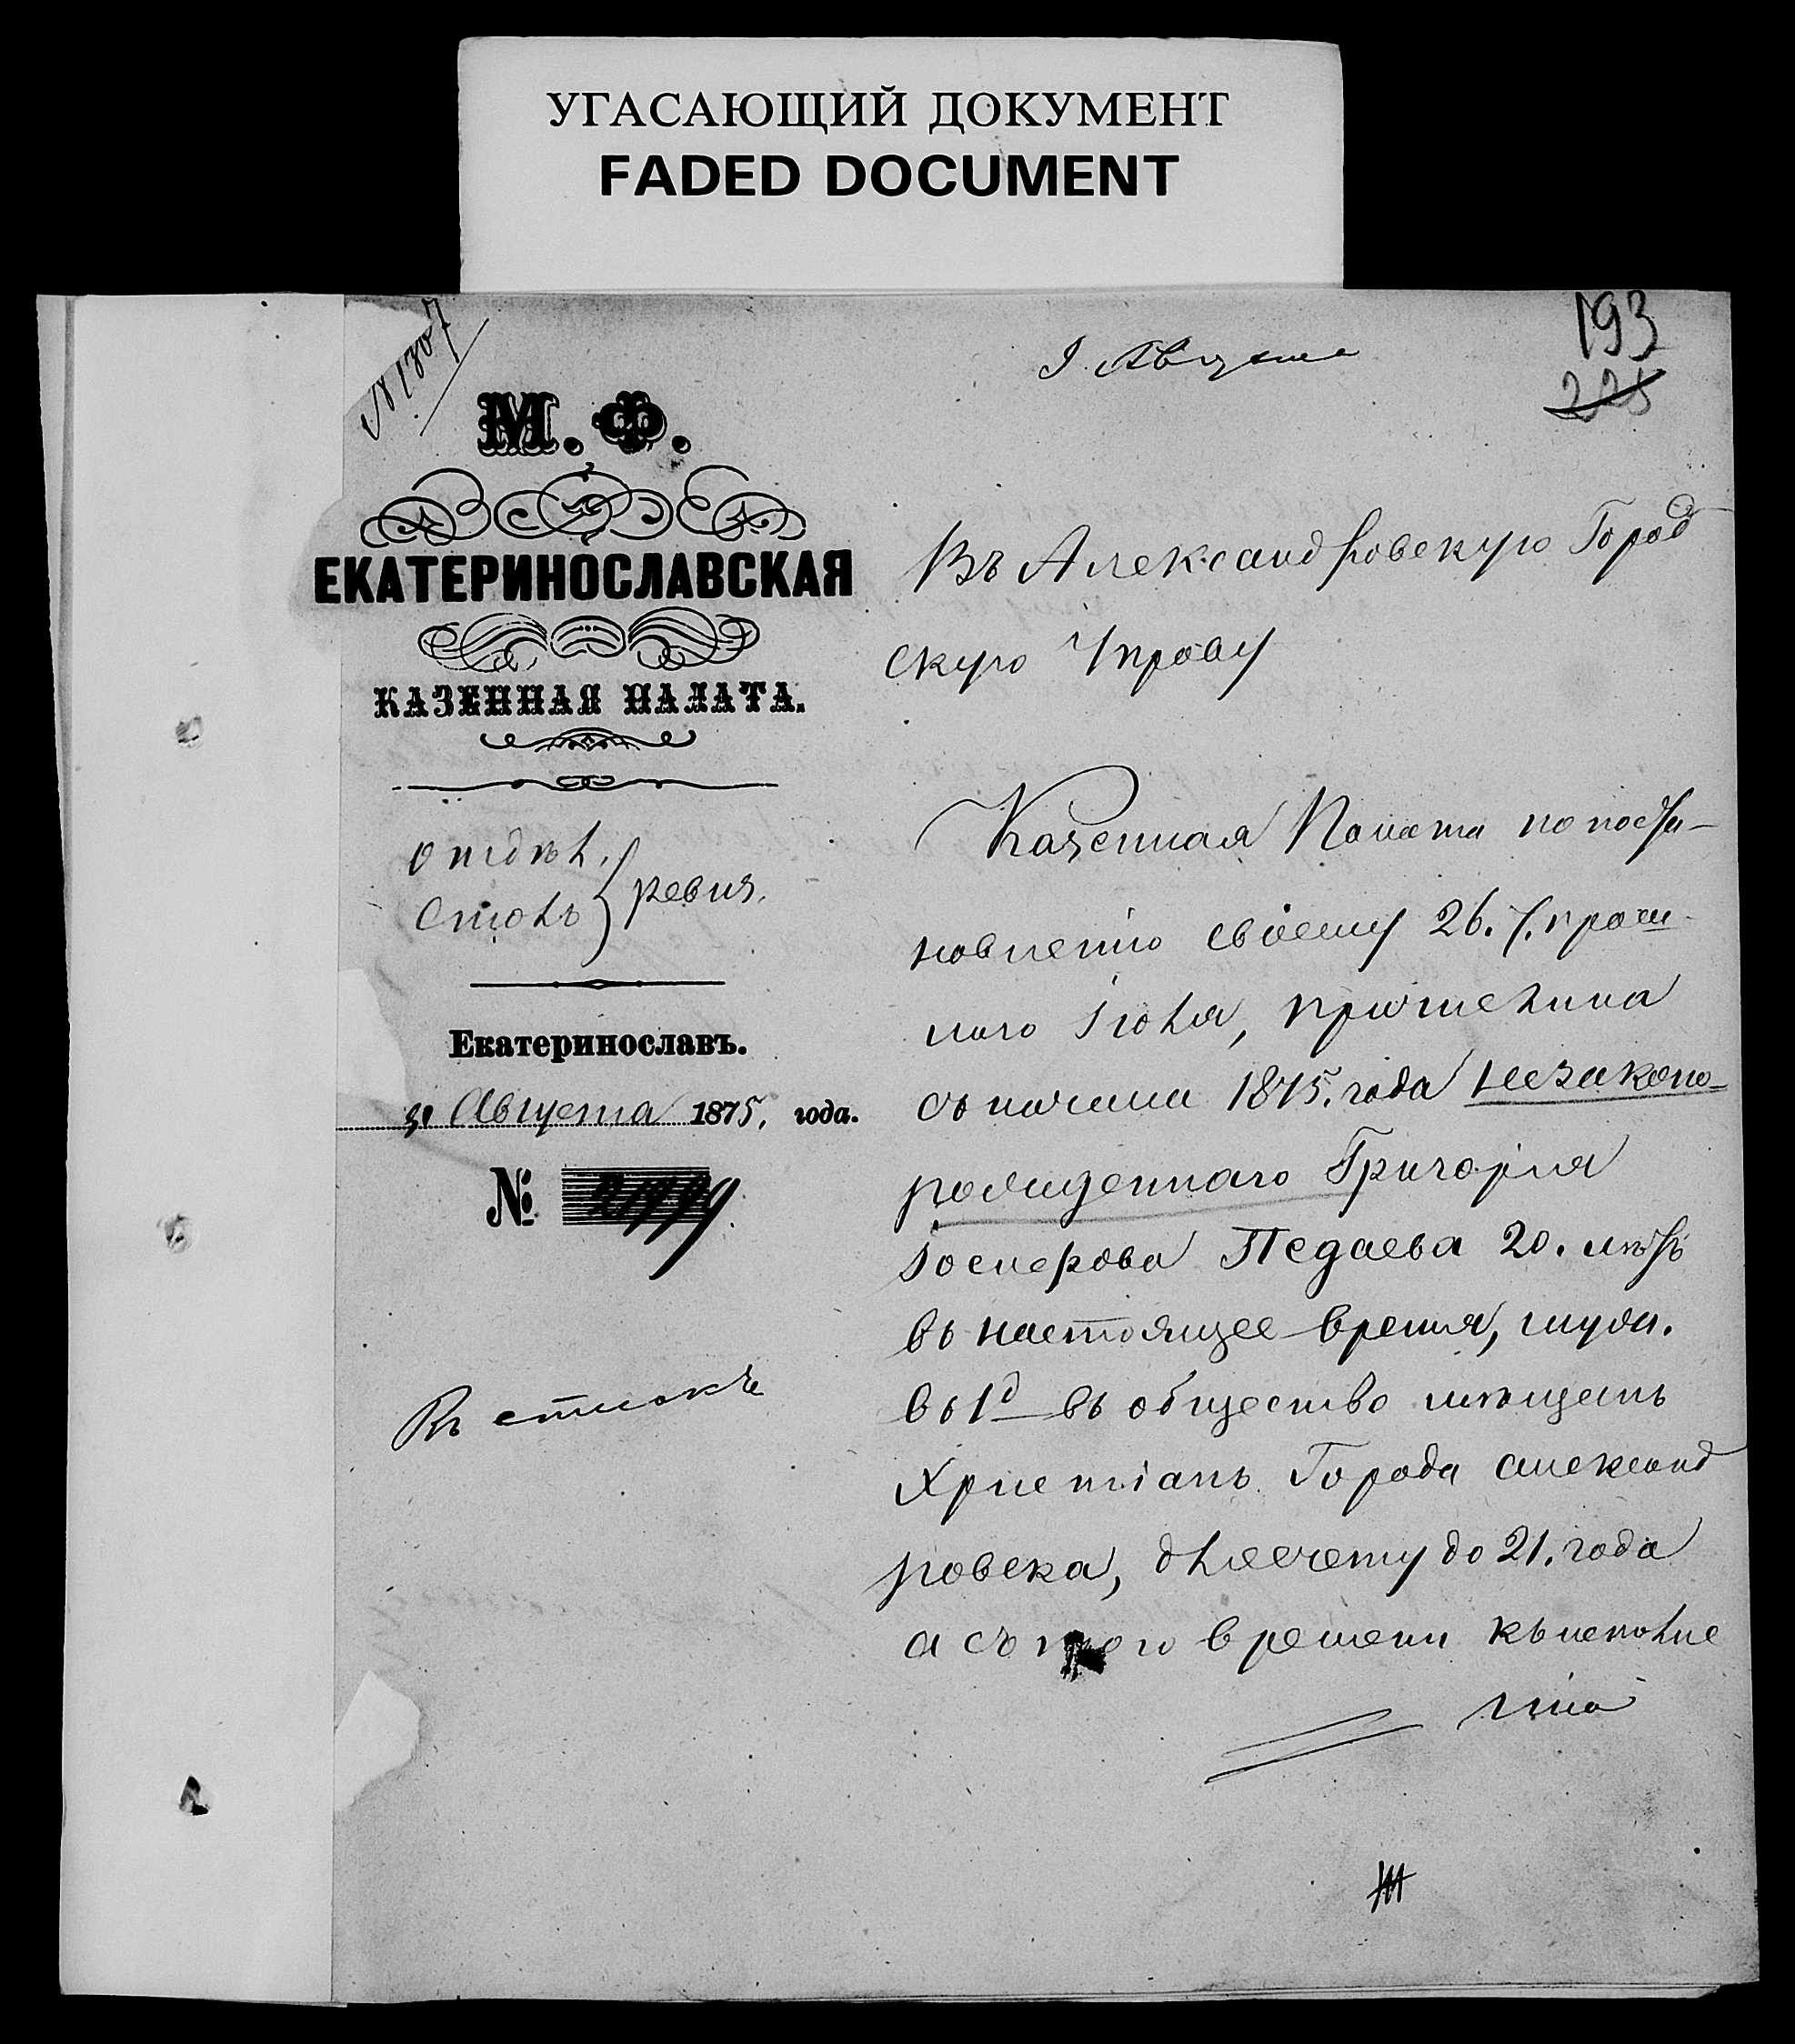 УГАСАЮЩИЙ ДОКУМЕНТ
FADED DOCUMENT
193
225
№ 1807
9 Августа
М. Ф.
ЕКАТЕРИНОСЛАВСКАЯ
КАЗЕННАЯ ПАЛАТА.
Отдѣл.
Столъ } ревиз.
Екатеринославъ.
Августа 1875, года.
№
Въ Александровскую Город
скую Управу
Казенная Палата по поста-
новленію своему 26. прош
лаго Іюля, причислила
съ начала 1875. года незаконо-
рожденнаго Григорія
Педаева 20. лѣтъ
въ настоящее время,
въ общество мѣщанъ
Христіанъ Города Александ
ровска, для счету до 21. года
а съ того времени къ исполне
нію
Въ